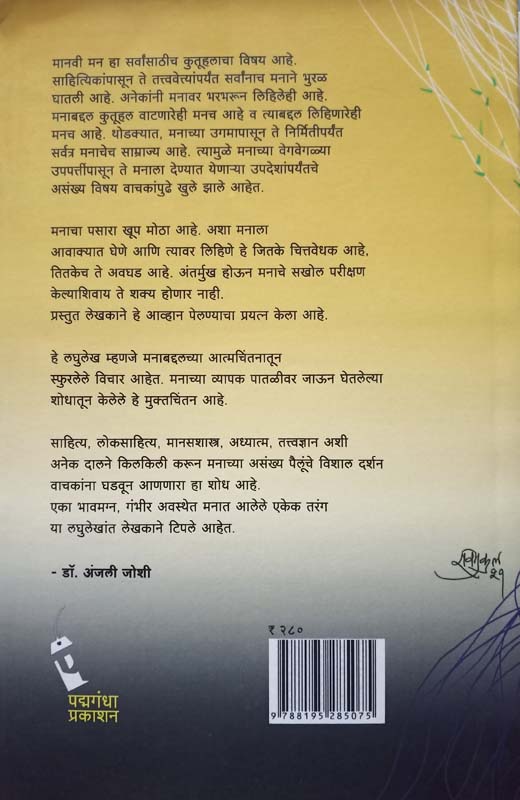 मानवी मन हा सर्वांसाठीच कुतूहलाचा विषय आहे.
साहित्यिकांपासून ते तत्त्ववेत्त्यांपर्यंत सर्वांनाच मनाने भुरळ
घातली आहे. अनेकांनी मनावर भरभरून लिहिलेही आहे.
मनाबद्दल कुतूहल वाटणारेही मनच आहे व त्याबद्दल लिहिणारेही
मनच आहे. थोडक्यात, मनाच्या उगमापासून ते निर्मितीपर्यंत
सर्वत्र मनाचेच साम्राज्य आहे. त्यामुळे मनाच्या वेगवेगळ्या
उपपत्तींपासून ते मनाला देण्यात येणाऱ्या उपदेशांपर्यंतचे
असंख्य विषय वाचकांपुढे खुले झाले आहेत.
मनाचा पसारा खूप मोठा आहे. अशा मनाला
आवाक्यात घेणे आणि त्यावर लिहिणे हे जितके चित्तवेधक आहे,
तितकेच ते अवघड आहे. अंतर्मुख होऊन मनाचे सखोल परीक्षण
केल्याशिवाय ते शक्य होणार नाही.
प्रस्तुत लेखकाने हे आव्हान पेलण्याचा प्रयत्न केला आहे.
हे लघुलेख म्हणजे मनाबद्दलच्या आत्मचिंतनातून
स्फुरलेले विचार आहेत. मनाच्या व्यापक पातळीवर जाऊन घेतलेल्या
शोधातून केलेले हे मुक्तचिंतन आहे.
साहित्य, लोकसाहित्य, मानसशास्त्र, अध्यात्म, तत्त्वज्ञान अशी
अनेक दालने किलकिली करून मनाच्या असंख्य पैलूंचे विशाल दर्शन
वाचकांना घडवून आणणारा हा शोध आहे.
एका भावमग्न, गंभीर अवस्थेत मनात आलेले एकेक तरंग
या लघुलेखांत लेखकाने टिपले आहेत.
- डॉ. अंजली जोशी
₹ २८०
पद्मगंधा
प्रकाशन
9 788195 285075